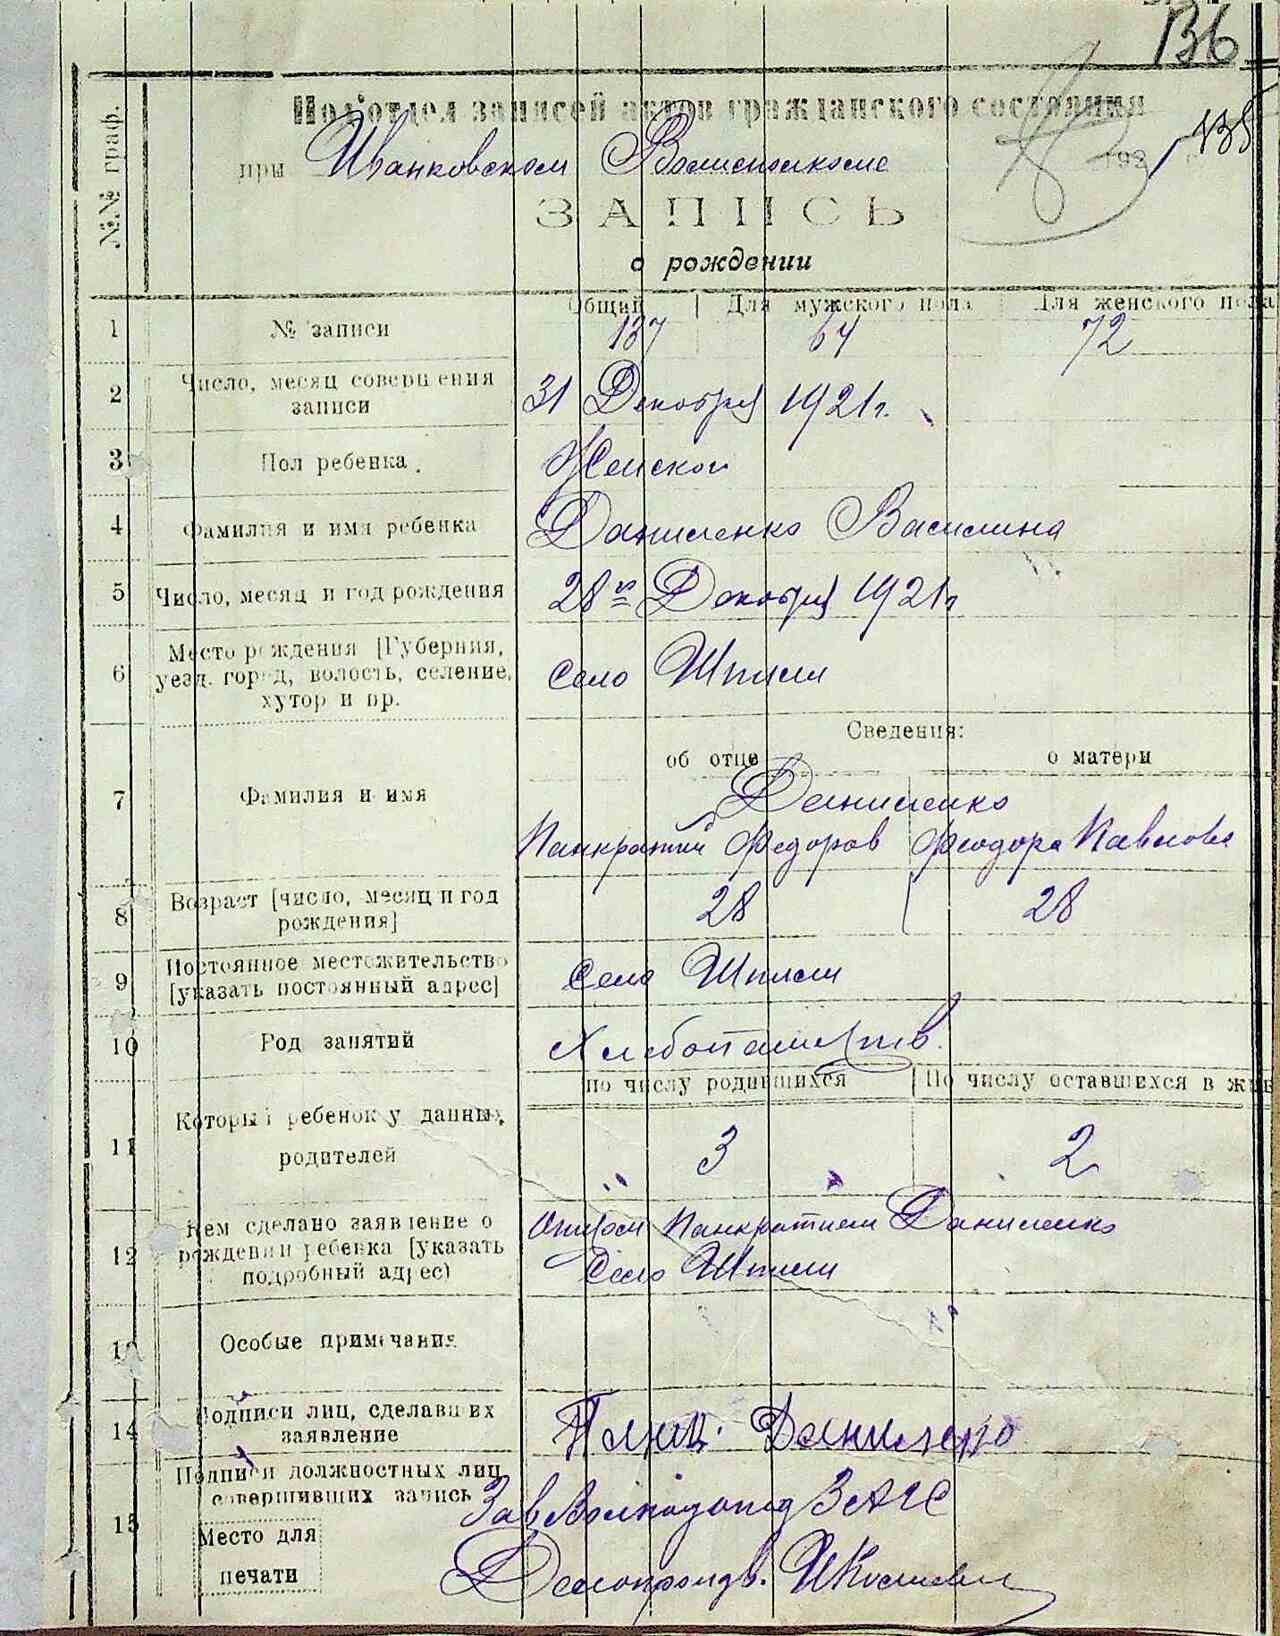 136
Под'отдел записей актов гражданского состояния
138
при Иванковском Волисполкоме
192
ЗАПИСЬ
о рождении
№№ граф.
Общий Для мужского пола Для женского пола
1 № записи 137 64 72
2 Число, месяц совершения записи 31 Декабря 1921 г.
3 Пол ребенка. Женской
4 Фамилия и имя ребенка Даниленко Василина
5 Число, месяц и год рождения 28го Декабря 1921 г
6 Место рождения [Губерния, уезд. город, волость, селение, хутор и пр. село Шпили
Сведения:
об отце о матери
7 Фамилия и имя Даниленко
Панкратий Федоров Феодора Павлова
8 Возраст [число, месяц и год рождения] 28 28
9 Постоянное местожительство [указать постоянный адрес] Село Шпили
10 Род занятий Хлебопашеств.
по числу родившихся По числу оставшихся в жив
11 Который ребенок у данных родителей 3 2
12 Кем сделано заявление о рождении ребенка [указать подробный адрес) Отцом Панкратием Даниленко
Село Шпили
13 Особые примечания
14 Подписи лиц, сделавших заявление Данилено
15 Подписи должностных лиц совершивших запись Зав ЗАГС
Место для печати Делопроизв.